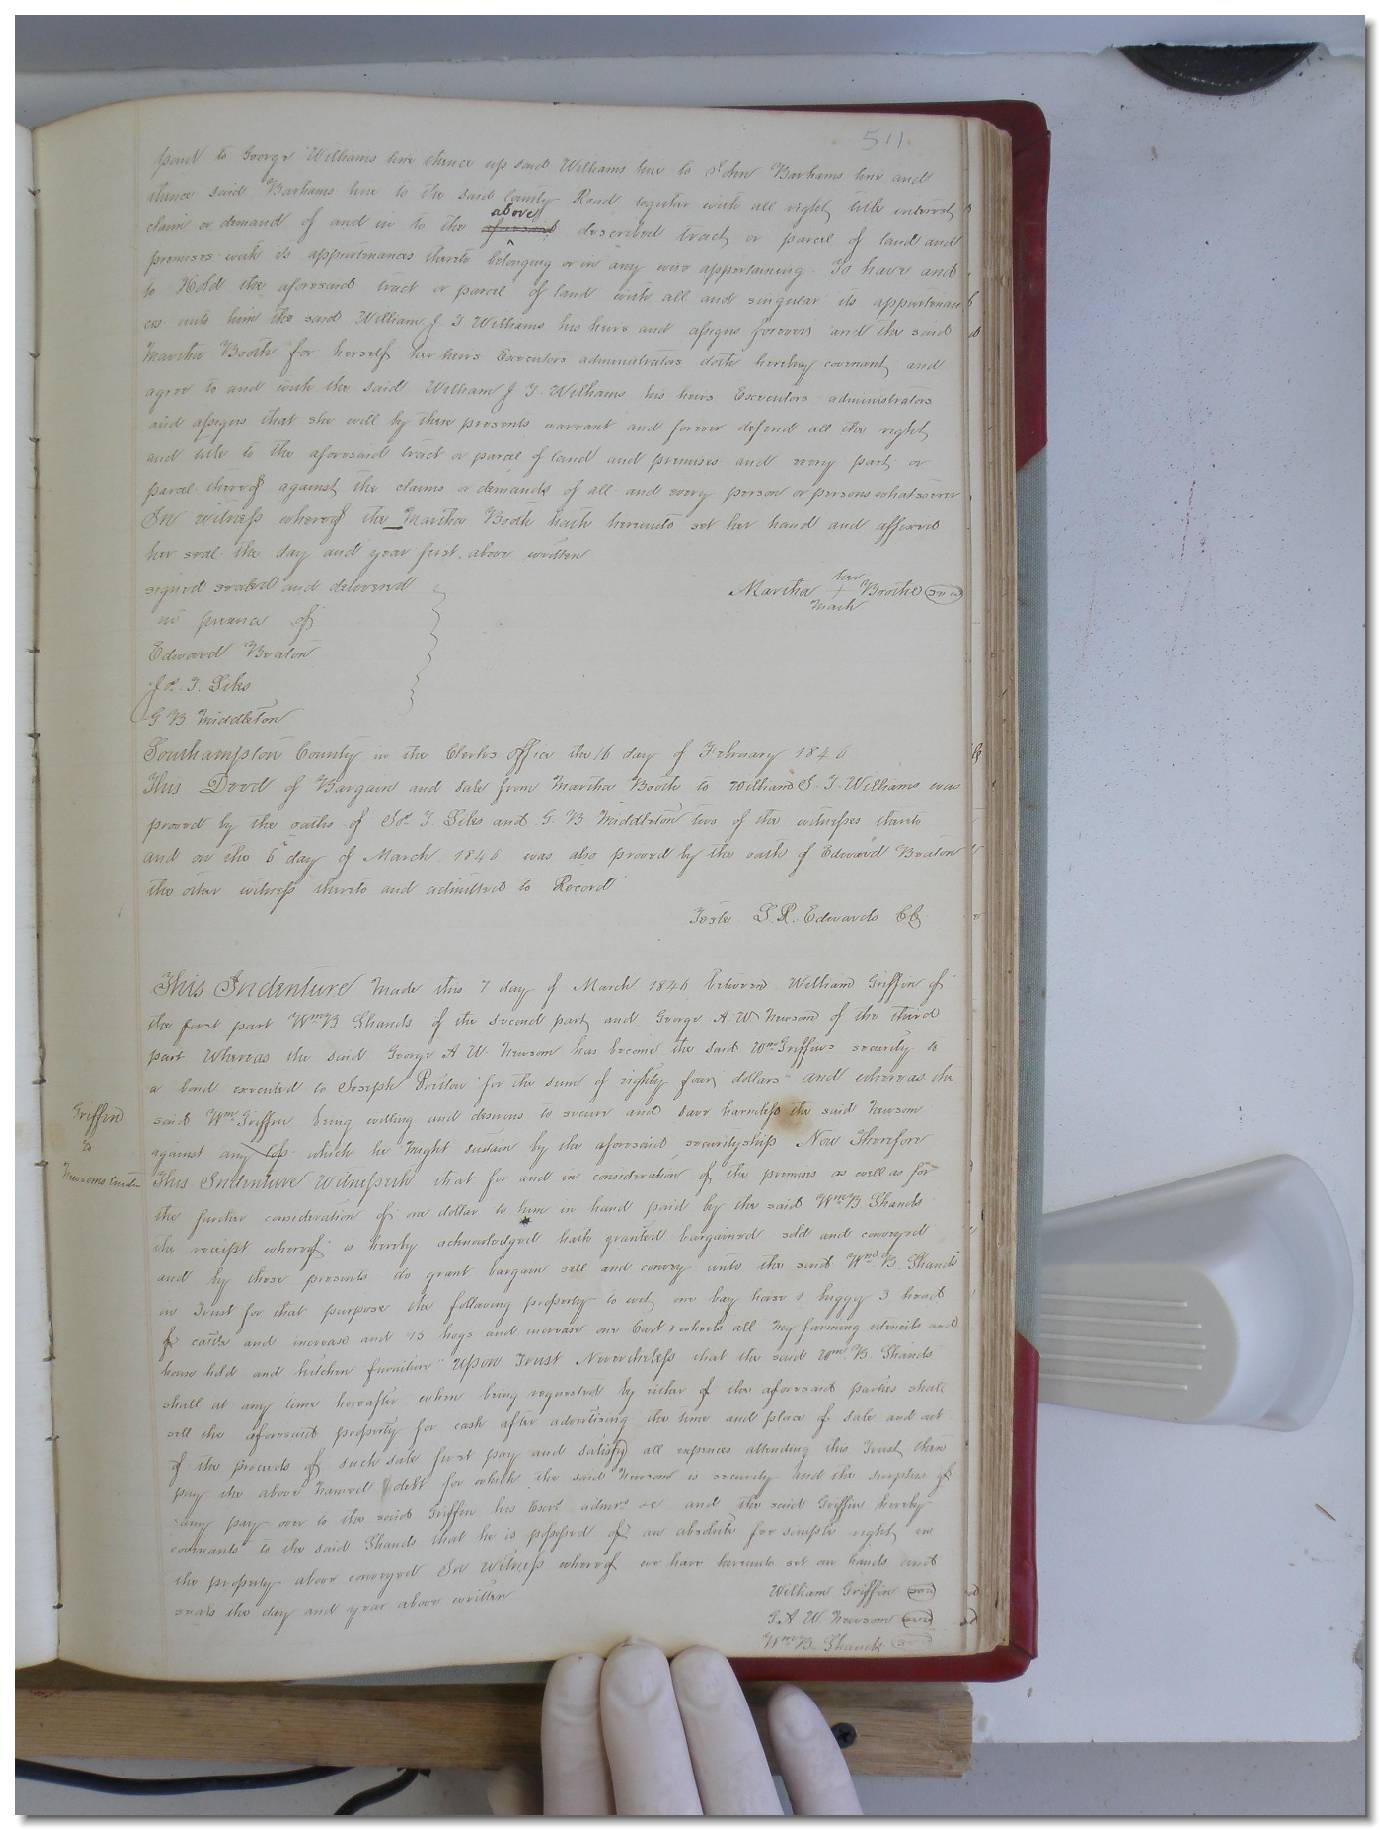 511
said to George Williams line thence up said Williams line to John Barhams line and
thence said Barhams line to the said County Road together with all right title interest
claim or demand of and in to the aforesaid above described tract or parcel of land and
premises with its appurtenances thereto belonging or in any wise appertaining To have and
to Hold the aforesaid tract or parcel of land with all and singular its appurtenan
ces unto him the said William J T Williams his heirs and assigns forever and the said
Martha Booth for herself her heirs Executors administrators doth hereby covenant and
agree to and with the said William J T Williams his heirs Executors administrators
and assigns that she will by these presents warrant and forever defend all the right
and title to the aforesaid tract or parcel of land and premises and every part or
parcel thereof against the claims or demands of all and every person or persons whatsoever
In witness whereof the Martha Booth hath hereunto set her hand and affixed
her seal the day and year first above written
signed sealed and delivered
in presence of
Martha her + mark Boothe seal
Edward Beaton
Jos. T. Liles
G B Middleton
Southampton County in the Clerks Office the 16 day of February 1846
This Deed of Bargain and Sale from Martha Booth to William J. T. Williams was
proved by the oaths of Jos T. Liles and G. B Middleton two of the witnesses thereto
and on the 6 day of March 1846 was also proved by the oath of Edward Beaton
the other witness thereto and admitted to Record
Teste L. R. Edwards CC
This Indenture Made this 7 day of March 1846 between William Griffin of
the first part Wm B Shands of the second part and George A W Newsom of the third
part Whereas the said George A W. Newsom has become the said Wm Griffins security to
a bond executed to Joseph for the sum of eighty four dollars and whereas the
Griffin
to
Newsoms Trustee
said Wm Griffin being willing and desirous to secure and save harmless the said Newsom
against any loss which he might sustain by the aforesaid securityship Now Therefore
This Indenture Witnesseth that for and in consideration of the premises as well as for
the further consideration of one dollar to him in hand paid by the said Wm B Shands
the receipt whereof is hereby acknowledged hath granted bargained sold and conveyed
and by these presents do grant bargain sell and convey unto the said Wm B. Shands
in Trust for that purpose the following property to wit, one bay horse 1 buggy 3 head
of cattle and increase and 15 hogs and increase one Cart & wheels all my farming utensils and
house hold and kitchen furniture Upon Trust Nevertheless that the said Wm B. Shands
shall at any time hereafter when being requested by either of the aforesaid parties shall
sell the aforesaid property for cash after advertising the time and place of sale and out
of the proceeds of such sale first pay and satisfy all expences attending this Trust, then
pay the above named debt for which the said Newsom is security and the surplus if
any pay over to the said Griffin his Exors admrs &c and the said Griffin hereby
covenants to the said Shands that he is possessed of an absolute fee simple right in
the property above conveyed In Witness whereof we have hereunto set our hands and
seals the day and year above written
William Griffin seal
G. A W. Newsom seal
Wm B. Shands seal